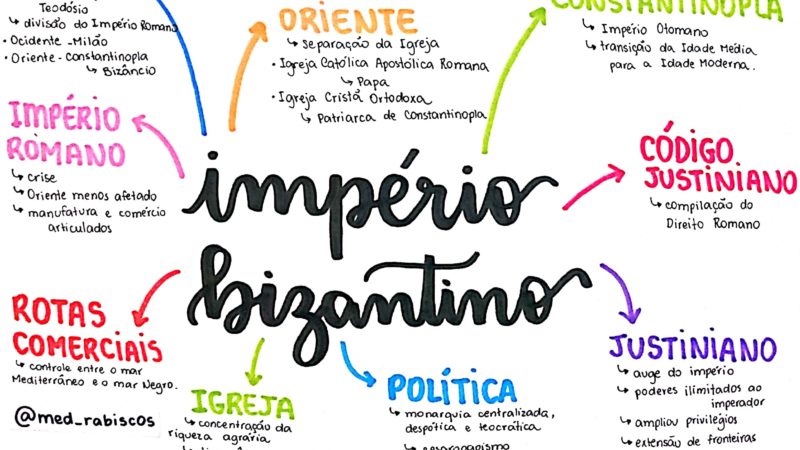 Teodósio
↳ divisão do Império Romano
• Ocidente - Milão
• Oriente - Constantinopla
↳ Bizâncio
ORIENTE
↳ separação da Igreja
• Igreja Católica Apostólica Romana
↳ Papa
• Igreja Cristã Ortodoxa
↳ Patriarca de Constantinopla
CONSTANTINOPLA
↳ Império Otomano
↳ transição da Idade Média
para a Idade Moderna.
IMPÉRIO
ROMANO
↳ crise
↳ Oriente menos afetado
↳ manufatura e comércio
articulados
império
bizantino
CÓDIGO
JUSTINIANO
↳ compilação do
Direito Romano
ROTAS
COMERCIAIS
↳ controle entre o mar
Mediterrâneo e o mar Negro.
@med_rabiscos
IGREJA
↳ concentração da
riqueza agrária
POLÍTICA
↳ monarquia centralizada,
despótica e teocrática
↳ cesaropapismo
JUSTINIANO
↳ auge do império
↳ poderes ilimitados ao
imperador
↳ ampliou privilégios
↳ extensão de fronteiras